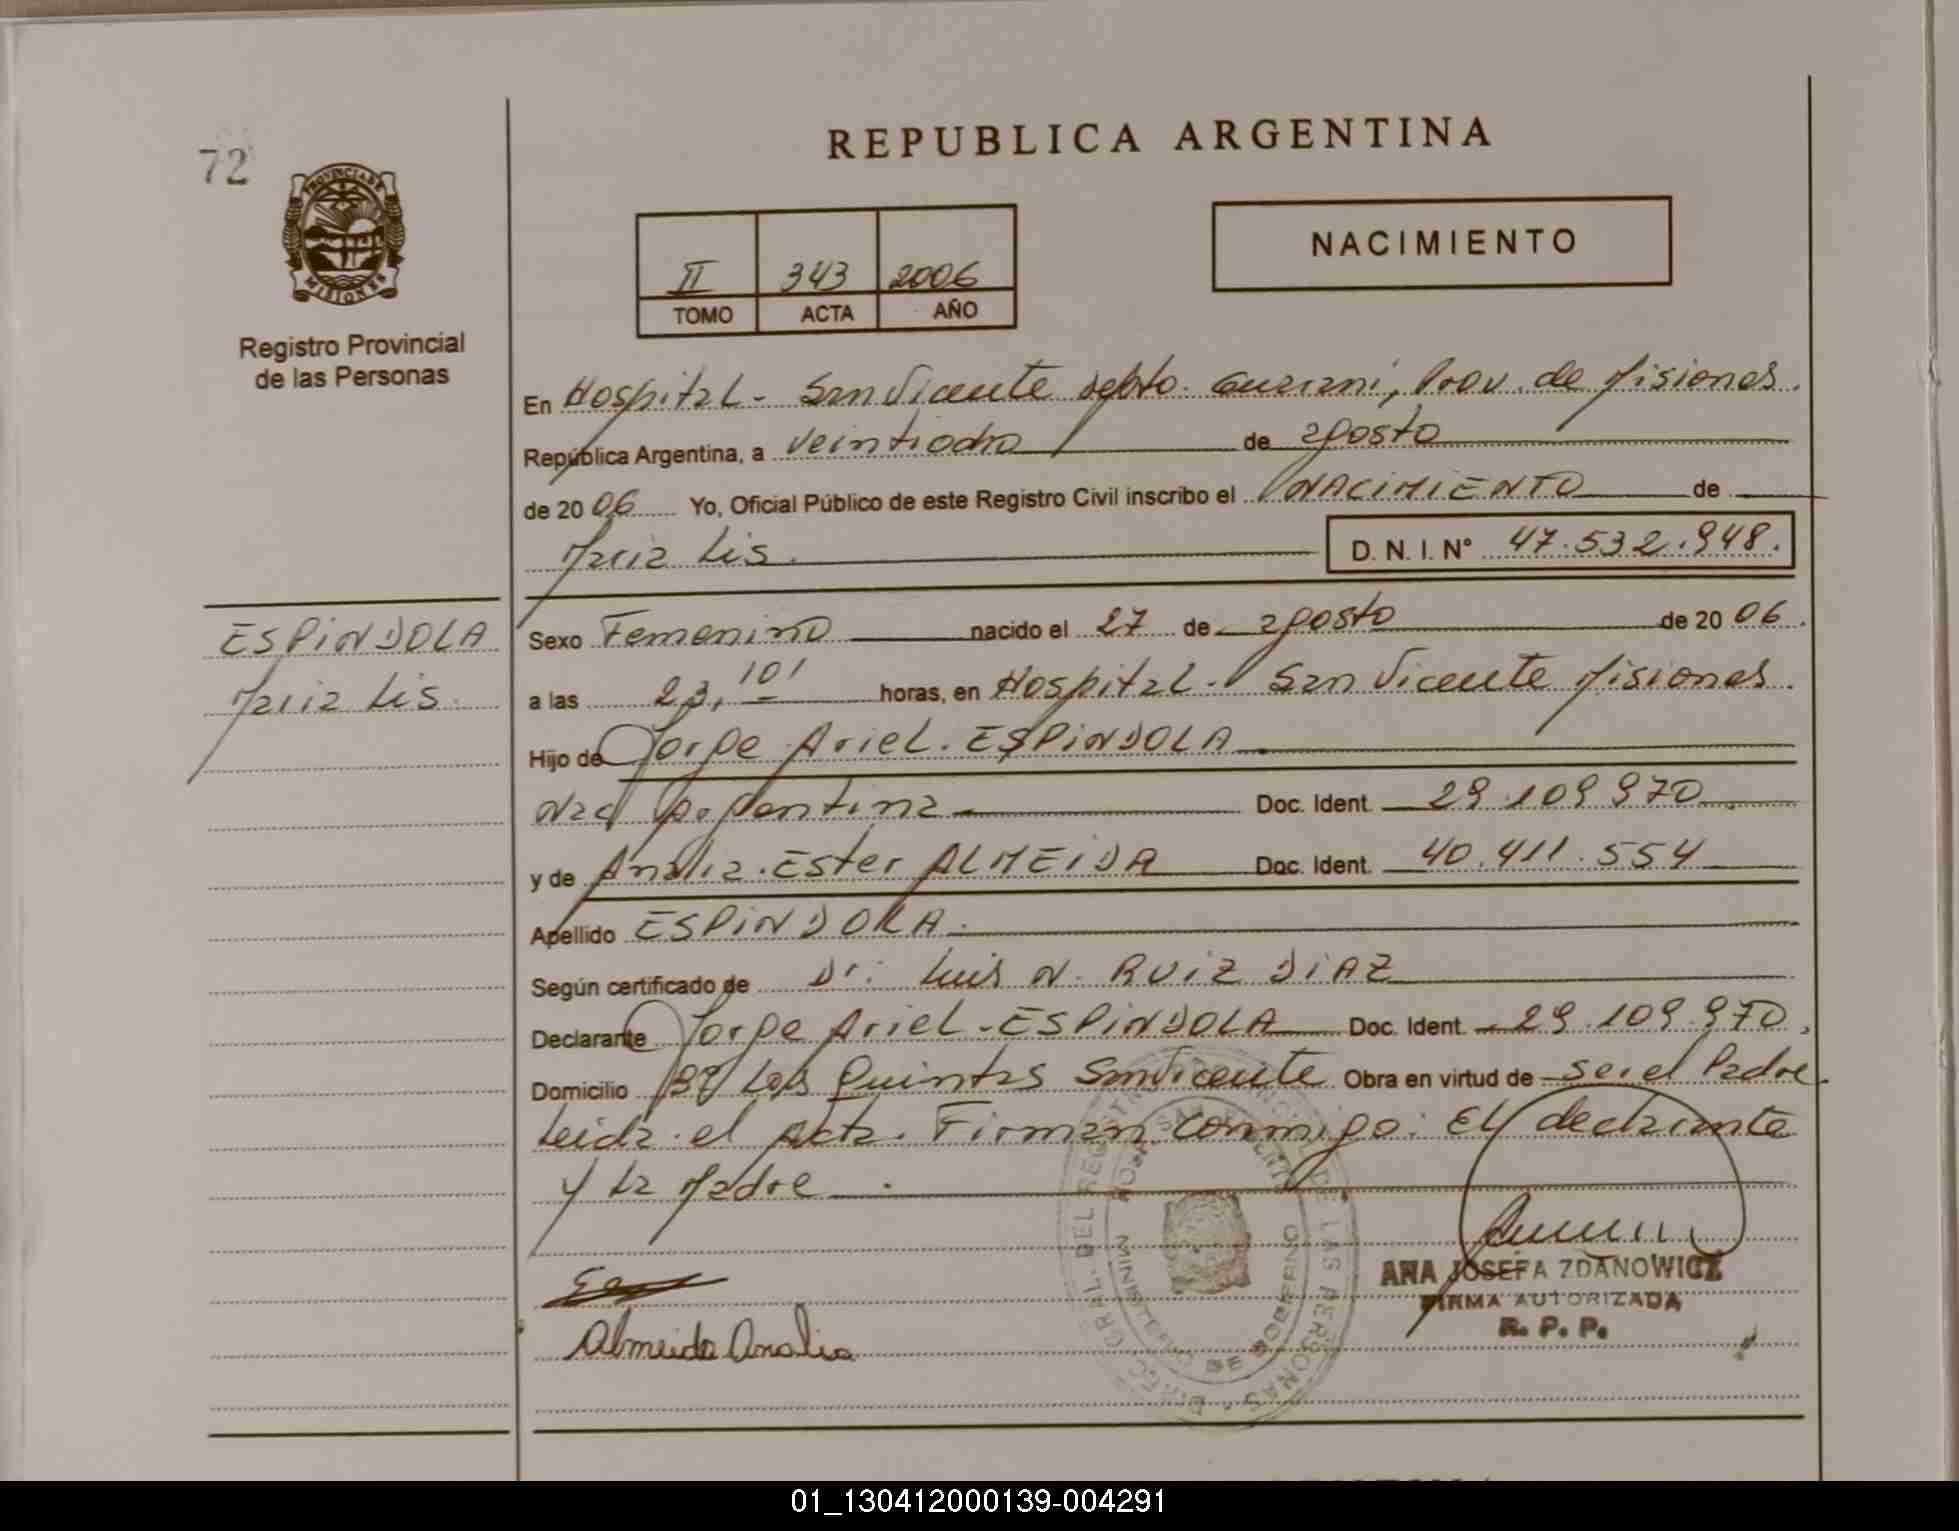 72
PROVINCIA DE
MISIONES
Registro Provincial
de las Personas
REPUBLICA ARGENTINA
NACIMIENTO
II 343 2006
TOMO ACTA AÑO
En Hospital - San Vicente depto. Guarani, Prov. de Misiones.
República Argentina, a veintiocho de agosto
de 2006 Yo, Oficial Público de este Registro Civil inscribo el NACIMIENTO de
Maria Lis. D. N. I. N° 47.532.948.
ESPINDOLA
Maria Lis.
Sexo Femenino nacido el 27 de agosto de 2006.
a las 23,10' horas, en Hospital - San Vicente Misiones.
Hijo de Jorge Ariel. ESPINDOLA
Nac Argentina Doc. Ident. 29.109.970.
y de Analia. Ester ALMEIDA Doc. Ident. 40.411.554
Apellido ESPINDOLA.
Según certificado de Dr. Luis N. RUIZ DIAZ
Declarante Jorge Ariel - ESPINDOLA Doc. Ident. 29.109.970.
Domicilio Bº Las Quintas San Vicente Obra en virtud de ser el Padre
Leida el Acta. Firman conmigo. El declarante
y la Madre.
ANA JOSEFA ZDANOWICZ
FIRMA AUTORIZADA
R. P. P.
Almeida Analia
MINISTERIO DE GOBIERNO
01_130412000139-004291